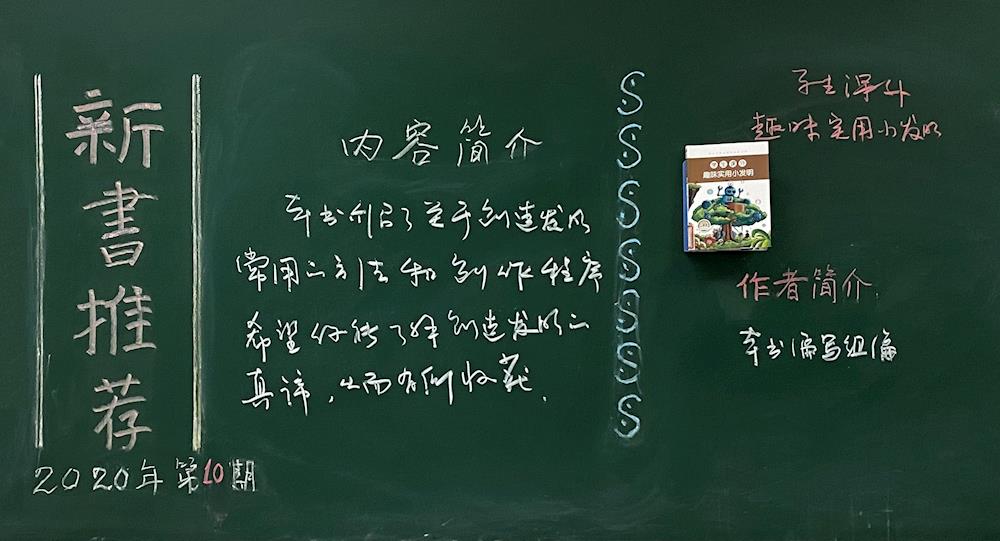 新書推荐
2020年第10期
内容简介
本书介绍了关于创造发明
常用之方法和创作程序
希望你能了解创造发明之
真谛，从而有所收获.
SSSSSSSS
学生课外
趣味实用小发明
学生课外
趣味实用小发明
作者简介
本书编写组编